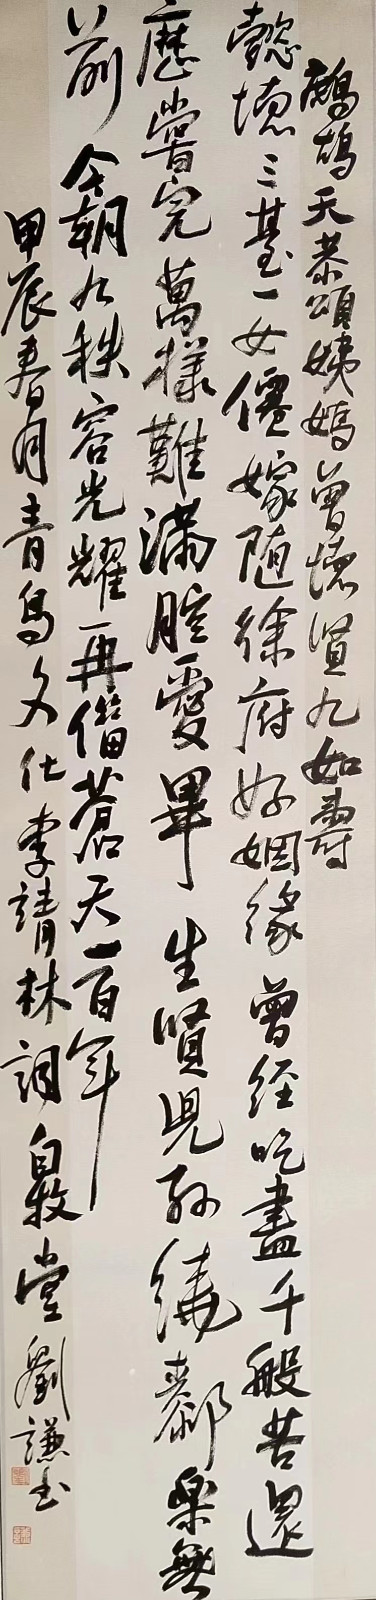 鷓鴣天恭頌姨媽曾德賢九如壽
懿德三臺一女僊嫁随徐府好姻緣曾經吃盡千般苦還
歷嘗完萬樣難滿腔愛畢生賢兒孫繞膝樂無
前今朝九秩容光耀再借蒼天一百年
甲辰春月青鳥文仕李靖林詞自牧堂劉謙書